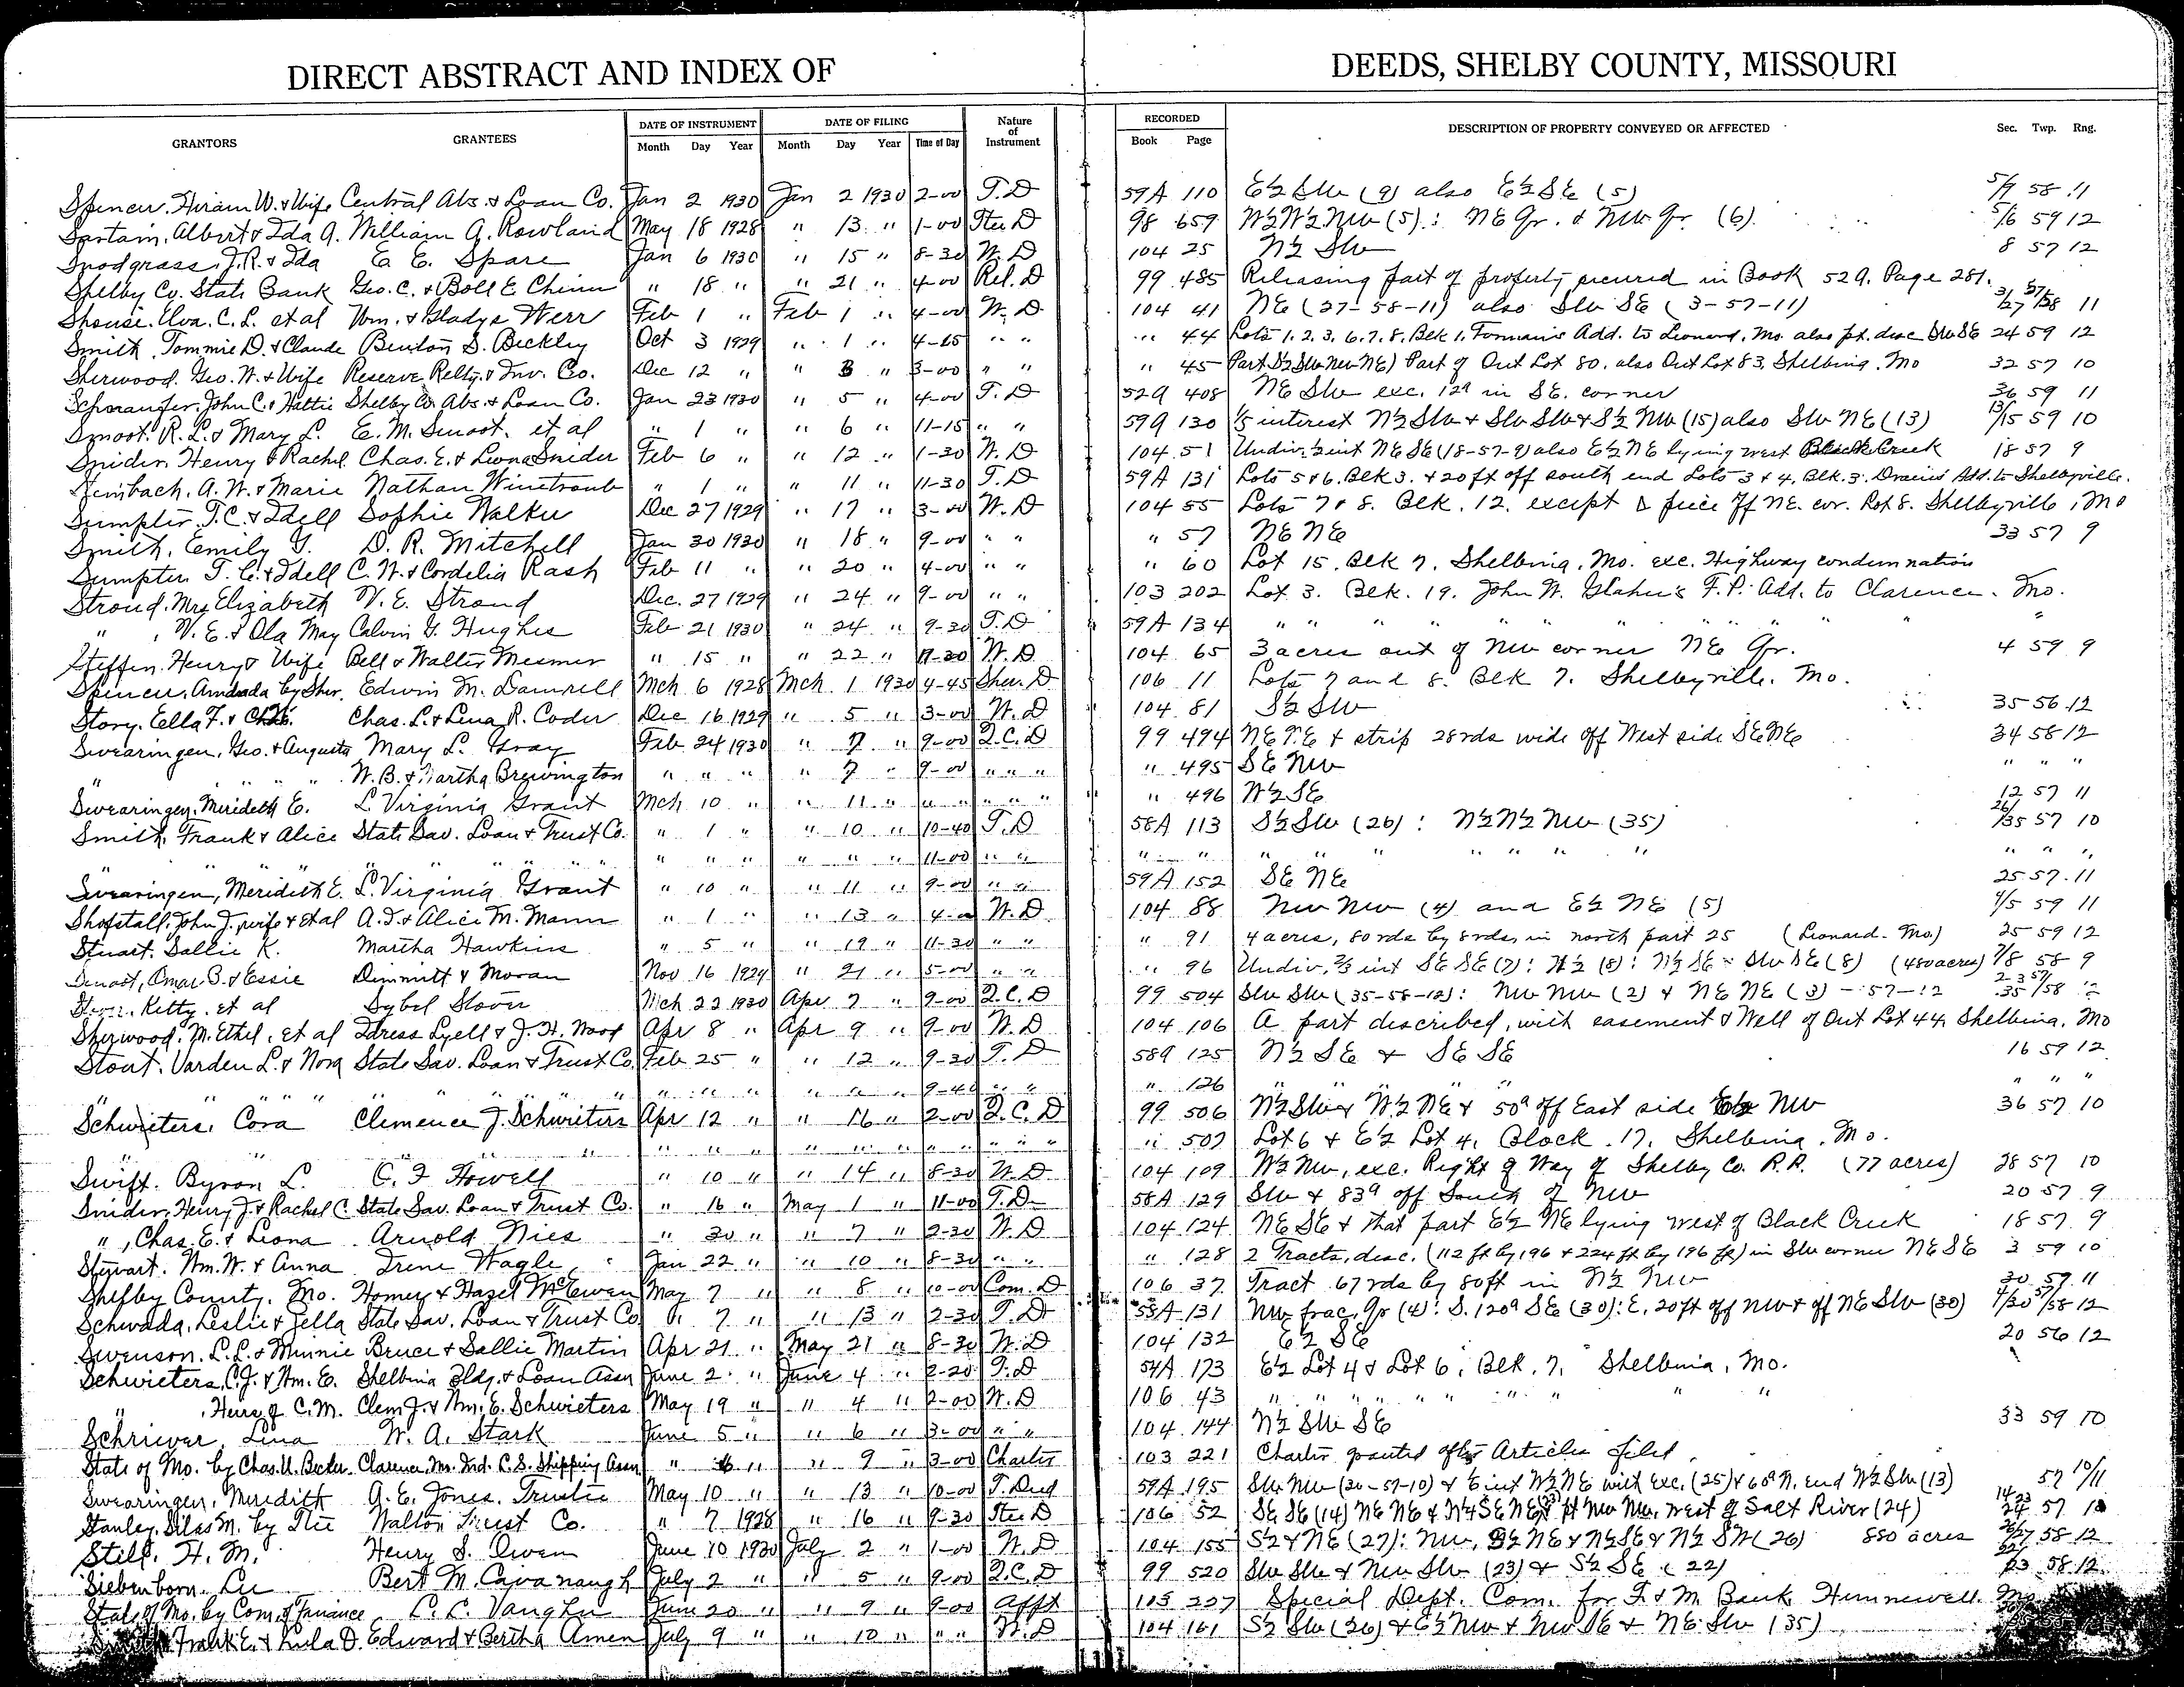 DIRECT ABSTRACT AND INDEX OF DEEDS, SHELBY COUNTY, MISSOURI
GRANTORS GRANTEES DATE OF INSTRUMENT DATE OF FILING Nature of Instrument RECORDED DESCRIPTION OF PROPERTY CONVEYED OR AFFECTED Sec. Twp. Rng.
Month Day Year Month Day Year Time of Day Book Page
Spencer, Hiram W. & Wife Central Abs. & Loan Co. Jan 2 1930 Jan 2 1930 2-00 T.D 59A 110 E½ SW (9) also E½ SE (5) 5/9 58 11
Sartain, Albert & Ida A. William A. Rowland May 18 1928 " 13 " 1-00 Tter D 98 659 W½ W½ NW (5): NE Qr. & NW Qr. (6) 5/6 59 12
Snodgrass, J.R. & Ida E. E. Spare Jan 6 1930 " 15 " 8-30 W.D 104 25 N½ SW 8 57 12
Shelby Co. State Bank Geo. C. & Bell E Chinn " 18 " " 21 " 4-00 Rel. D 99 485 Releasing part of property secured in Book 52A. Page 281.
Shouse, Elva. C. L. et al Wm. & Gladys Werr Feb 1 " Feb 1 " 4-00 W.D 104 41 NE (27-58-11) also SW SE (3-57-11) 3/27 57/58 11
Smith, Tommie D. & Claude Benton S. Bickley Oct 3 1929 " 1 " " " " 44 Lots 1, 2, 3, 6, 7, 8, Blk 1, Forman's Add. to Leonard, Mo. also pt. desc SW SE 24 59 12
Sherwood, Geo. W. & Wife Reserve Relty. & Inv. Co. Dec 12 " " 3 " 3-00 " " " 45 Part Out Lot 80, also Out Lot 83, Shelbina, Mo 32 57 10
John C. & Hattie Shelby Co. Abs. & Loan Co. Jan 23 1930 " 5 " 4-00 T.D 52A 408 NE SW exc. 12a in SE. corner 36 59 11
Smoot, R. L. & Mary L. E. M. Smoot, et al " 1 " " 6 " 11-15 " " 59A 130 1/5 interest N½ SW & SW SW & S½ NW (15) also SW NE (13) 13/15 59 10
Snider, Henry & Rachel Chas. E. & Leona Snider Feb 6 " " 12 " 1-30 W.D 104 51 Undiv. ½ int NE SE (18-57-9) also E½ NE lying west Black Creek 18 57 9
A. W. & Marie Nathan Winetroub " 1 " " 11 " 11-30 T.D 59A 131 Lots 5 & 6, Blk 3, & 20 ft off south end Lots 3 & 4, Blk. 3, Add. to Shelbyville.
Sumpter, T. C. & Idell Sophie Walker Dec 27 1929 " 17 " 3-00 W.D 104 55 Lots 7 & 8, Blk. 12, except piece off NE. cor. Lot 8. Shelbyville, Mo
Smith, Emily G. D. R. Mitchell Jan 30 1930 " 18 " 9-00 " " " 57 NE NE 33 57 9
Sumpter, T. C. & Idell C. W. & Cordelia Rash Feb 11 " " 20 " 4-00 " " " 60 Lot 15, Blk 7, Shelbina, Mo. exc. Highway condemnation
Stroud, Mrs Elizabeth V. E. Stroud Dec. 27 1929 " 24 " 9-00 " " 103 202 Lot 3. Blk. 19. John W. F. P. Add. to Clarence, Mo.
" , V. E. & Ola May Calvin G. Hughes Feb 21 1930 " 24 " 9-30 T.D 59A 134 " " " " " " " " "
Steffen, Henry & Wife Bell & Walter Mesmer " 15 " " 22 " W.D 104 65 3 acres out of NW corner NE Qr. 4 59 9
Spencer, Amanda by Sher. Edwin M. Damrell Mch 6 1928 Mch 1 1930 4-45 Sher. D 106 11 Lots 7 and 8, Blk 7. Shelbyville, Mo.
Story, Ella F. & Chas. Chas. L. & Lena R. Coder Dec 16 1929 " 5 " 3-00 W.D 104 81 S½ SW 35 56 12
Swearingen, Geo. & Augusta Mary L. Gray Feb 24 1930 " 7 " 9-00 Q.C.D 99 494 NE & strip 28 rds wide off West side SE NE 34 58 12
" " " " W. B. & Martha Brewington " " " " 7 " 9-00 " " " " 495 SE NW " " "
Swearingen, Merideth E. L. Virginia Grant Mch 10 " " 11 " " " " " " " 496 W½ SE 12 57 11
Smith, Frank & Alice State Sav. Loan & Trust Co. " 1 " " 10 " 10-40 T.D 58A 113 S½ SW (26): N½ N½ NW (35) 26/35 57 10
" " " " " " " " " " " " " " " 11-00 " " " " " " " " " " " " " "
Swearingen, Merideth E. L. Virginia Grant " 10 " " 11 " 9-00 " " 59A 152 SE NE 25 57 11
Shofstall, John J. wife & et al A. D. & Alice M. Mann " 1 " " 13 " W.D 104 88 NW NW (4) and E½ NE (5) 4/5 59 11
Stuart, Sallie K. Martha Hawkins " 5 " " 19 " 11-30 " " " 91 4 acres, 80 rds by 8 rds, in north part 25 (Leonard Mo.) 25 59 12
Smoot, Omar B. & Essie Dimmitt & Moran Nov 16 1929 " 21 " 5-00 " " " 96 Undiv. 2/3 int SE SE (7): W½ (8): N½ SE & SW SE (8) (480 acres) 7/8 58 9
Ketty, et al Sybel Stover Mch 22 1930 Apr 7 " 9-00 Q.C.D 99 504 SW SW (35-58-12): NW NW (2) & NE NE (3) - 57-12 2-3/35 57/58 12
Sherwood, M. Ethel, et al Idress Lyell & J. H. Wood Apr 8 " Apr 9 " 9-00 W.D 104 106 A part described, with easement & Well of Out Lot 44, Shelbina, Mo
Stout, Varden L. & Nora State Sav. Loan & Trust Co. Feb 25 " " 12 " 9-30 T.D 58A 125 N½ SE & SE SE 16 59 12
" " " " " " " " " " " " " 9-40 " " " 126 " " " " " "
Schwieters, Cora Clemence J. Schwieters Apr 12 " " 16 " 2-00 Q.C.D 99 506 N½ SW & W½ NE & 50a off East side NW 36 57 10
" " " " " " " " " " " " " " 507 Lot 6 & E½ Lot 4, Block 17, Shelbina, Mo.
Swift, Byron L. C. F Howell " 10 " " 14 " 8-30 W.D 104 109 W½ NW, exc. Right of Way of Shelby Co. R.R. (77 acres) 28 57 10
Snider, Henry J. & Rachel C State Sav. Loan & Trust Co. " 16 " May 1 " 11-00 T.D 58A 129 SW & 83a off South of NW 20 57 9
" , Chas. E. & Leona Arnold Nies " 30 " " 7 " 2-30 W.D 104 124 NE SE & that part E½ NE lying west of Black Creek 18 57 9
Stewart, Wm. W. & Anna Irene Wagle Jan 22 " " 10 " 8-30 " " " 128 2 Tracts, desc. (112 ft by 196 & 224 ft by 196 ft) in SW corner NE SE 3 59 10
Shelby County, Mo. Homer & Hazel McEwen May 7 " " 8 " 10-00 Com. D 106 37 Tract 67 rds by 80 ft in N½ NW 30 59 11
Schwada, Leslie & Zella State Sav. Loan & Trust Co " 7 " " 13 " 2-30 T.D 58A 131 NW frac. Qr (4): S. 120a SE (30): E. 20 ft off NW & off NE SW (30) 4/30 57/58 12
Swenson, L. L. & Minnie Bruce & Sallie Martin Apr 21 " May 21 " 8-30 W.D 104 132 E½ SE 20 56 12
Schwieters, C.J. & Wm. E. Shelbina Bldg. & Loan Assn June 2 " June 4 " 2-20 T.D 54A 173 E½ Lot 4 & Lot 6, Blk. 7, Shelbina, Mo.
" , Heirs of C. M. Clem J. & Wm. E. Schwieters May 19 " " 4 " 2-00 W.D 106 43 " " " " " " " " "
Schriever, Lena W. A. Stark June 5 " " 6 " 3-00 " " 104 144 N½ SW SE 33 59 10
State of Mo. by Chas. U. Becker Clarence, Mo. Ind. L. S. Shipping Assn " 6 " " 9 " 3-00 Charter 103 221 Charter granted after Articles filed.
Swearingen, Meredith A. E. Jones, Trustee May 10 " " 13 " 10-00 T. Deed 59A 195 SW NW (30-57-10) & int W½ NE with exc. (25) & 60a N. end W½ SW (13) 57 10/11
Stanley, Silas M. by Ttee Walton Trust Co. " 7 1928 " 16 " 9-30 Ttee D 106 52 SE SE (14) NE NE & N½ SE NE (23) pt NW NW. west of Salt River (24) 14 23/24 57 10
Still, H. M. Henry S. Owen June 10 1930 July 2 " 1-00 W.D 104 155 S½ & NE (27): NW, S½ NE & N½ SE & N½ SW (26) 880 acres 26/27 58 12
Siebenborn, Lu Bert M. Cavanaugh July 2 " " 5 " 9-00 Q.C.D 99 520 SW SW & NW SW (23) & S½ SE (22) 22/23 58 12
State of Mo. by Com. of Finance C. C. Vaughn June 20 " " 9 " 9-00 Afft 103 227 Special Dept. Com. for F. & M. Bank Hunnewell. Mo
Smith, Frank E. & Lula D. Edward & Bertha Amen July 9 " " 10 " " " W.D 104 161 S½ SW (26) & E½ NW & NW SE & NE SW (35)